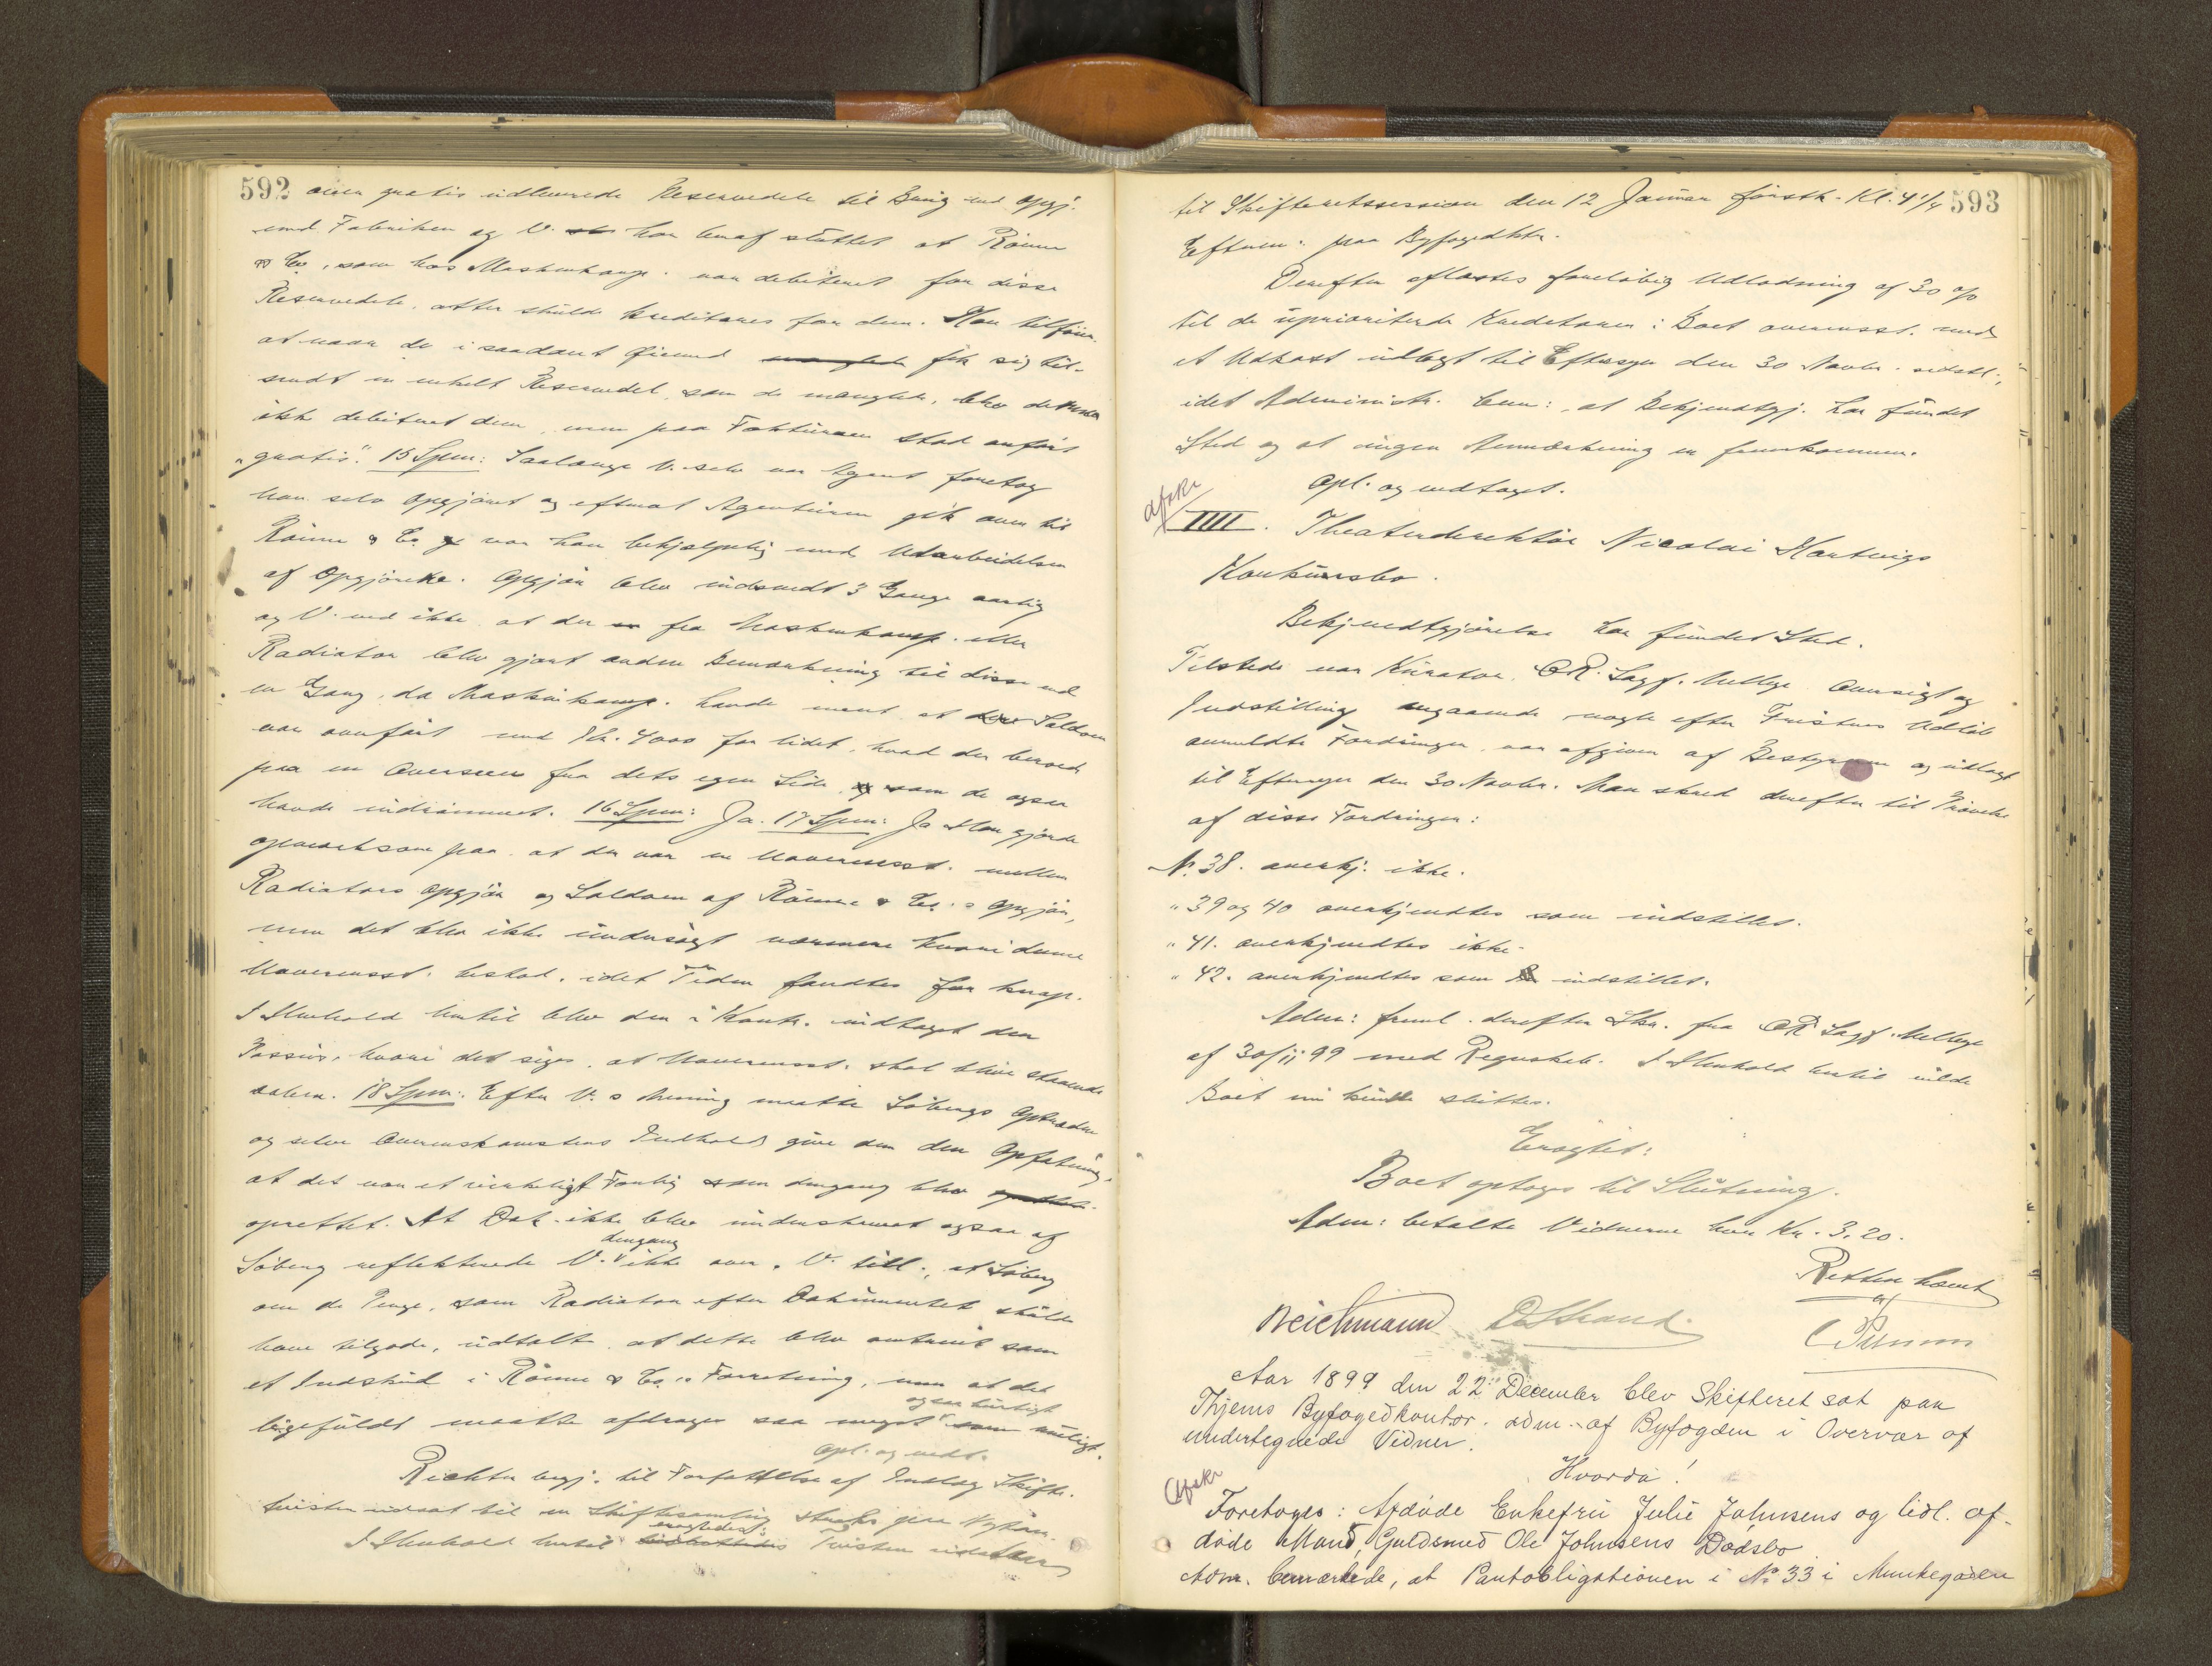 592
over gratis udleverede Reservedele til Brug ved Opgj.
med Fabriken og V. har heraf sluttet at Rönne
& Co, som hos Maskinkomp. var debiteret for disse
Reservedele, atter skulde krediteres for dem. Han tilföier
at naar de i saadant Öiemed fik sig til-
sendt en enkelt Reservedel, som de manglede, blev denne
ikke debiteret dem, men paa Fakturaen stod anfört
"gratis". 15 Spm: Saalænge V. selv var Agent foretog
han selv Opgjöret og efterat Agenturen gik over til
Rönne & Co var han behjælpelig med Udarbeidelsen
af Opgjörene. Opgjör blev indsendt 3 Gange aarlig
og V. ved ikke at der fra Maskinkomp. eller
Radiator blev gjort anden Bemærkning til disse end
en Gang, da Maskinkomp. havde ment at Saldoen
var overfört med Kr. 4000 for lidet, hvad der beroede
paa en Overseen fra dets egen Side, som de ogsaa
havde indrömmet. 16 Spm: Ja. 17 Spm: Ja Han gjorde
opmærksom paa at der var en Uoverensst. mellem
Radiators Opgjör og Saldoen af Rönne & Co.s Opgjör,
men det blev ikke undersögt nærmere hvori denne
Uoverensst. bestod, idet Tiden fandtes for knap.
I Henhold hertil blev der i Kontr. indtaget den
Passus, hvori det siges, at Uoverensst. skal blive staaende
aaben. 18 Spm: Efter V.s Mening maatte Söbergs Optræden
og selve Overenskomstens Indhold give den den Opfatning,
at det var et virkeligt Forlig som dengang blev
oprettet. At Dok. ikke blev underskrevet ogsaa af
dengang
Söberg reflekterede V. ikke over. V. till., at Söberg
om de Penge, som Radiator efter Dokumentet skulde
have tilgode, udtalte at dette blev omtrent som
et Indskud i Rönne & Co.s Forretning, men at det
ogsaa hurtigst
ligefuldt maatte afdrages saa meget som muligt.
Opl. og vedt.
Richter begj. til Forfattelse af Indlæg Skifte-
tvisten udsat til en Skiftesamling straks paa Nyaaret.
eragtedes:
I Henhold hertil Tvisten udsættes
593
til Skifteretssession den 12 Januar förstk. Kl. 4 1/4
Efterm. paa Byfogedktr.
Derefter oplæstes foreløbig Udlodning af 30 %
til de uprioriterede Kreditorer i Boet overensst. med
et Udkast udlagt til Eftersyn den 30 Novbr. sidstl.,
idet Administr. bem: at Bekjendtgj. har fundet
Sted og at ingen Anmærkning er fremkommen.
Opl. og vedtaget.
afskr
IIII. Theaterdirektör Nicolai Hartvigs
Konkursbo.
Bekjendtgjörelse har fundet Sted.
Tilstede var Kurator, OR. Sagf. Mellbye. Oversigt og
Indstilling angaaende nogle efter Fristens Udlöb
anmeldte Fordringer var afgiven af Bestyreren og udlagt
til Eftersyn den 30 Novbr. Man skred derefter til Prövelse
af disse Fordringer:
No. 38. anerkj. ikke.
" 39 og 40 anerkjendtes som indstillet.
" 41. anerkjendtes ikke
" 42. anerkjendtes som indstillet.
Adm: freml. derefter Skr. fra OR Sagf. Mellbye
af 30/11 99 med Regnskab. I Henhold hertil vilde
Boet nu kunde sluttes.
Eragtet:
Boet optages til Slutning.
Adm: betalte Vidnerne hver Kr. 3,20.
Retten hævet
Weichmann O Strand
Aar 1899 den 22de December blev Skifteret sat paa
Thjems Byfogedkontor. adm. af Byfogden i Overvær af
undertegnede Vidner.
Hvorda!
Afskr
Foretoges: Afdöde Enkefru Julie Johnsens og tidl. af-
döde Mand, Guldsmed Ole Johnsens Dödsbo.
Adm. bemærkede, at Pantobligationen i No 33 i Munkegaden